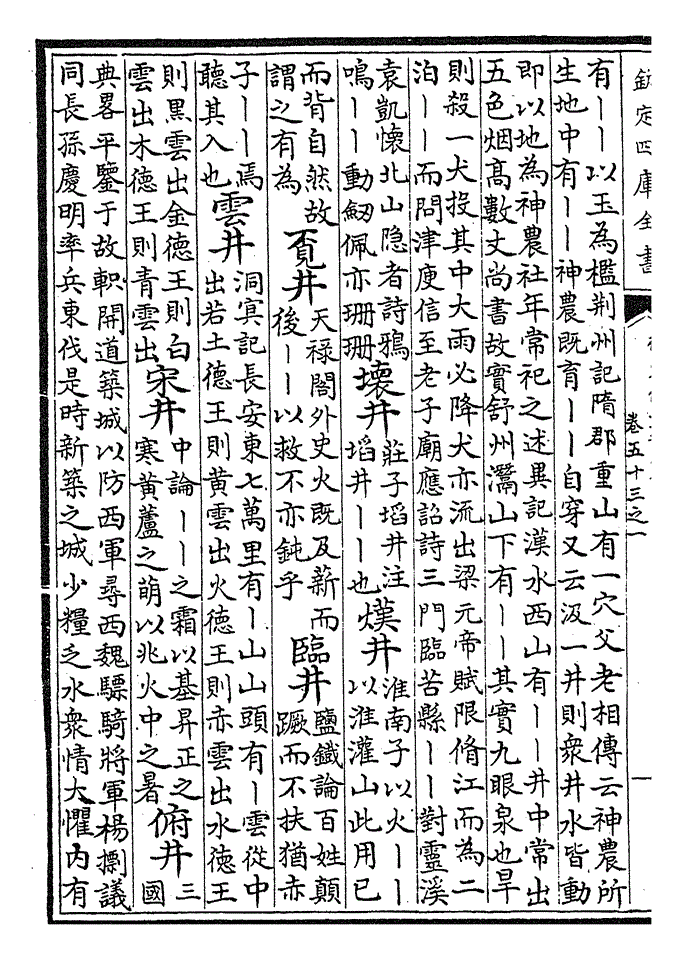 欽定四庫全書
卷五十三之一
有丨丨以玉為檻荆州記隋郡重山有一穴父老相傳云神農所
生地中有丨丨神農既育丨丨自穿又云汲一井則衆井水皆動
即以地為神農社年常祀之述異記漢水西山有丨丨井中常出
五色烟髙數丈尚書故實舒州灊山下有丨丨其實九眼泉也旱
則殺一犬投其中大雨必降犬亦流出梁元帝賦限脩江而為二
泊丨丨而問津庾信至老子廟應詔詩三門臨苦縣丨丨對靈溪
袁凱懐北山隐者詩鴉
鳴丨丨動劒佩亦珊珊
壊井
莊子埳井注
埳井丨丨也
熯井
淮南子以火丨丨
以淮灌山此用已
而背自然故
謂之有為
覔井
天禄閣外史火既及薪而
後丨丨以救不亦鈍乎
臨井
鹽鐵論百姓顛
蹶而不扶猶赤
子丨丨焉
聽其入也
雲井
洞㝠記長安東七萬里有丨山山頭有丨雲從中
出若土德王則黄雲出火德王則赤雲出水德王
則黒雲出金德王則白
雲出木德王則青雲出
宋井
中論丨丨之霜以基昇正之
寒黄蘆之萌以兆火中之暑
俯井
三
國
典畧平鑒于故軹開道築城以防西軍尋西魏驃騎將軍楊㯹議
同長孫慶明率兵東伐是時新築之城少糧乏水衆情大懼内有